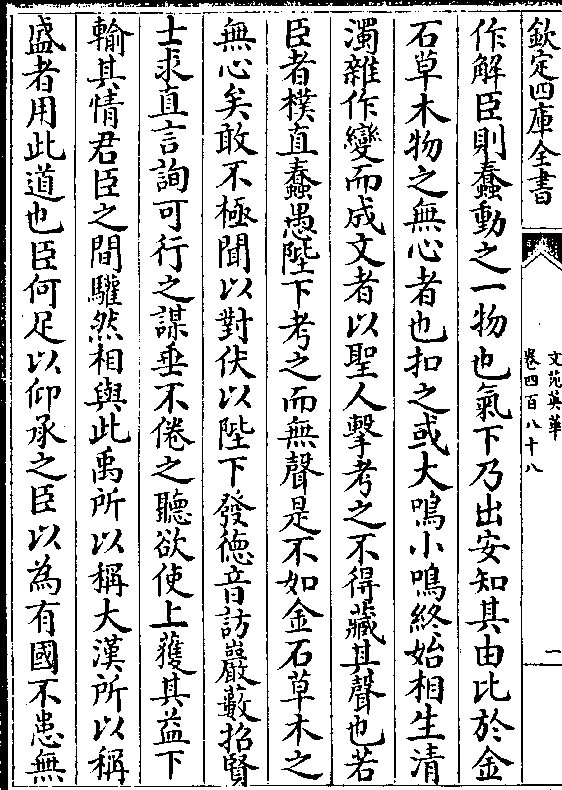 欽定四庫全書
文苑英華
卷四百八十八
二
作解臣則蠢動之一物也氣下乃出安知其由比於金
石草木物之無心者也扣之或大鳴小鳴終始相生清
濁雜作變而成文者以聖人擊考之不得藏其聲也若
臣者樸直蠢愚陛下考之而無聲是不如金石草木之
無心矣敢不極聞以對伏以陛下發德音訪巖藪招賢
士求直言詢可行之謀垂不倦之聽欲使上獲其益下
輸其情君臣之間驩然相與此禹所以稱大漢所以稱
盛者用此道也臣何足以仰承之臣以為有國不患無